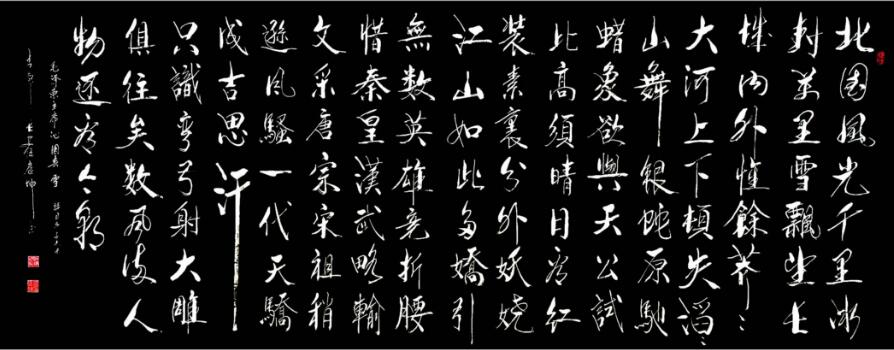 北国風光千里冰
封万里雪飄望长
城内外惟餘莽〻
大河上下頓失滔〻
山舞銀蛇原馳
蜡象欲與天公試
比高須晴日看红
装素裹分外妖娆
江山如此多嬌引
無数英雄竞折腰
惜秦皇漢武略輸
文采唐宗宋祖稍
遜风騷一代天驕
成吉思汗
只識彎弓射大雕
俱往矣数风流人
物还看今朝
毛泽东主席沁园春雪